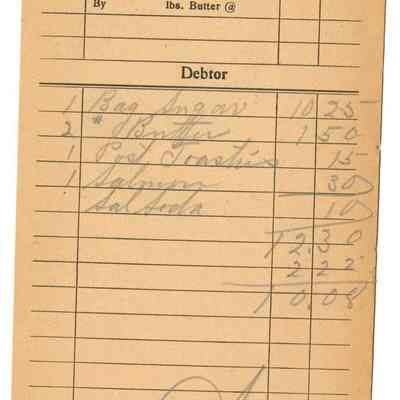 By lbs. Butter @
Debtor
1 Bag Sugar 10 25
2 " Butter 1 50
1 Post Toasties 15
1 Salmon 30
Sal Soda 10
12.30
2 22
10.08